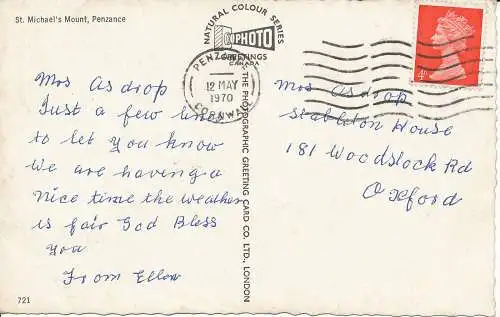 St. Michael's Mount, Penzance
NATURAL COLOUR SERIES
PHOTO
GREETINGS
CANADA
THE PHOTOGRAPHIC GREETING CARD CO. LTD., LONDON
PENZANCE
12 MAY
1970
CORNWALL
4D
Mrs Asdrop
Just a few lines
to let you know
we are having a
nice time the weather
is fair God Bless
You
From Ellen
Mrs Asdrop
Stableton House
181 Woodstock Rd
Oxford
721